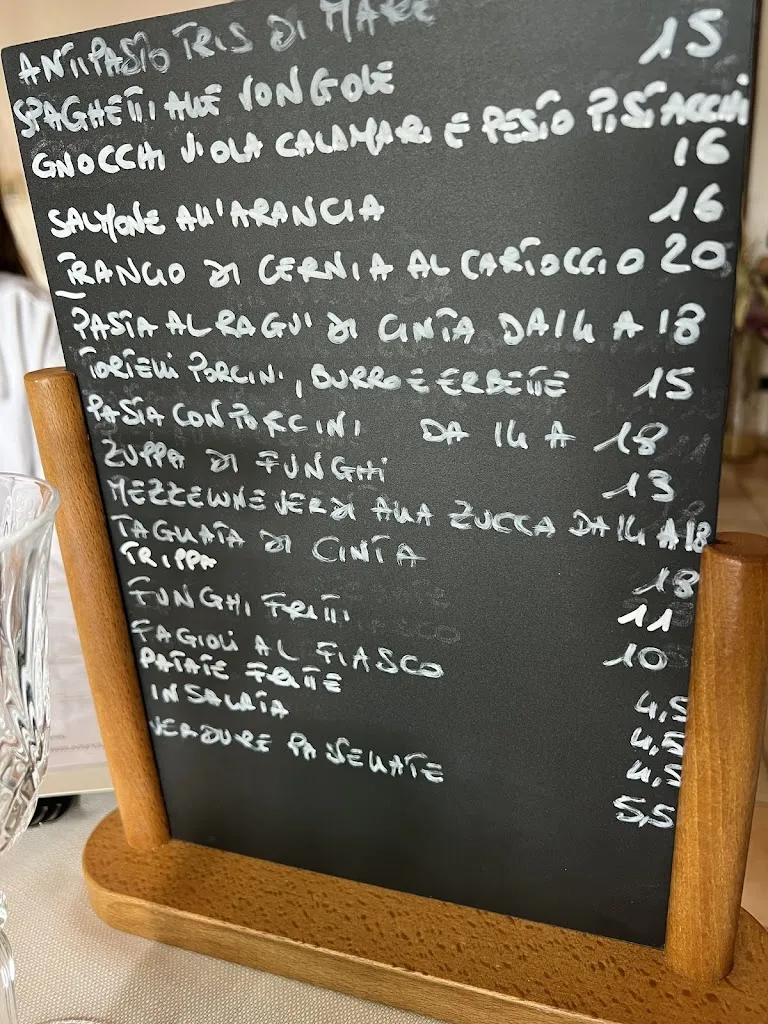 ANTIPASTO TRIS DI MARE
SPAGHETTI ALLE VONGOLE 15
GNOCCHI VIOLA CALAMARI E PESTO PISTACCHI
16
SALMONE ALL'ARANCIA 16
TRANCIO DI CERNIA AL CARTOCCIO 20
PASTA AL RAGU' DI CINTA DA 14 A 18
TORTELLI PORCINI, BURRO E ERBETTE 15
PASTA CON PORCINI DA 14 A 18
ZUPPA DI FUNGHI 13
MEZZELUNE VERDI ALLA ZUCCA DA 14 A 18
TAGLIATA DI CINTA 18
TRIPPA 11
FUNGHI FRITTI 10
FAGIOLI AL FIASCO 4,5
PATATE FRITTE 4,5
INSALATA 4,5
VERDURE PADELLATE 5,5